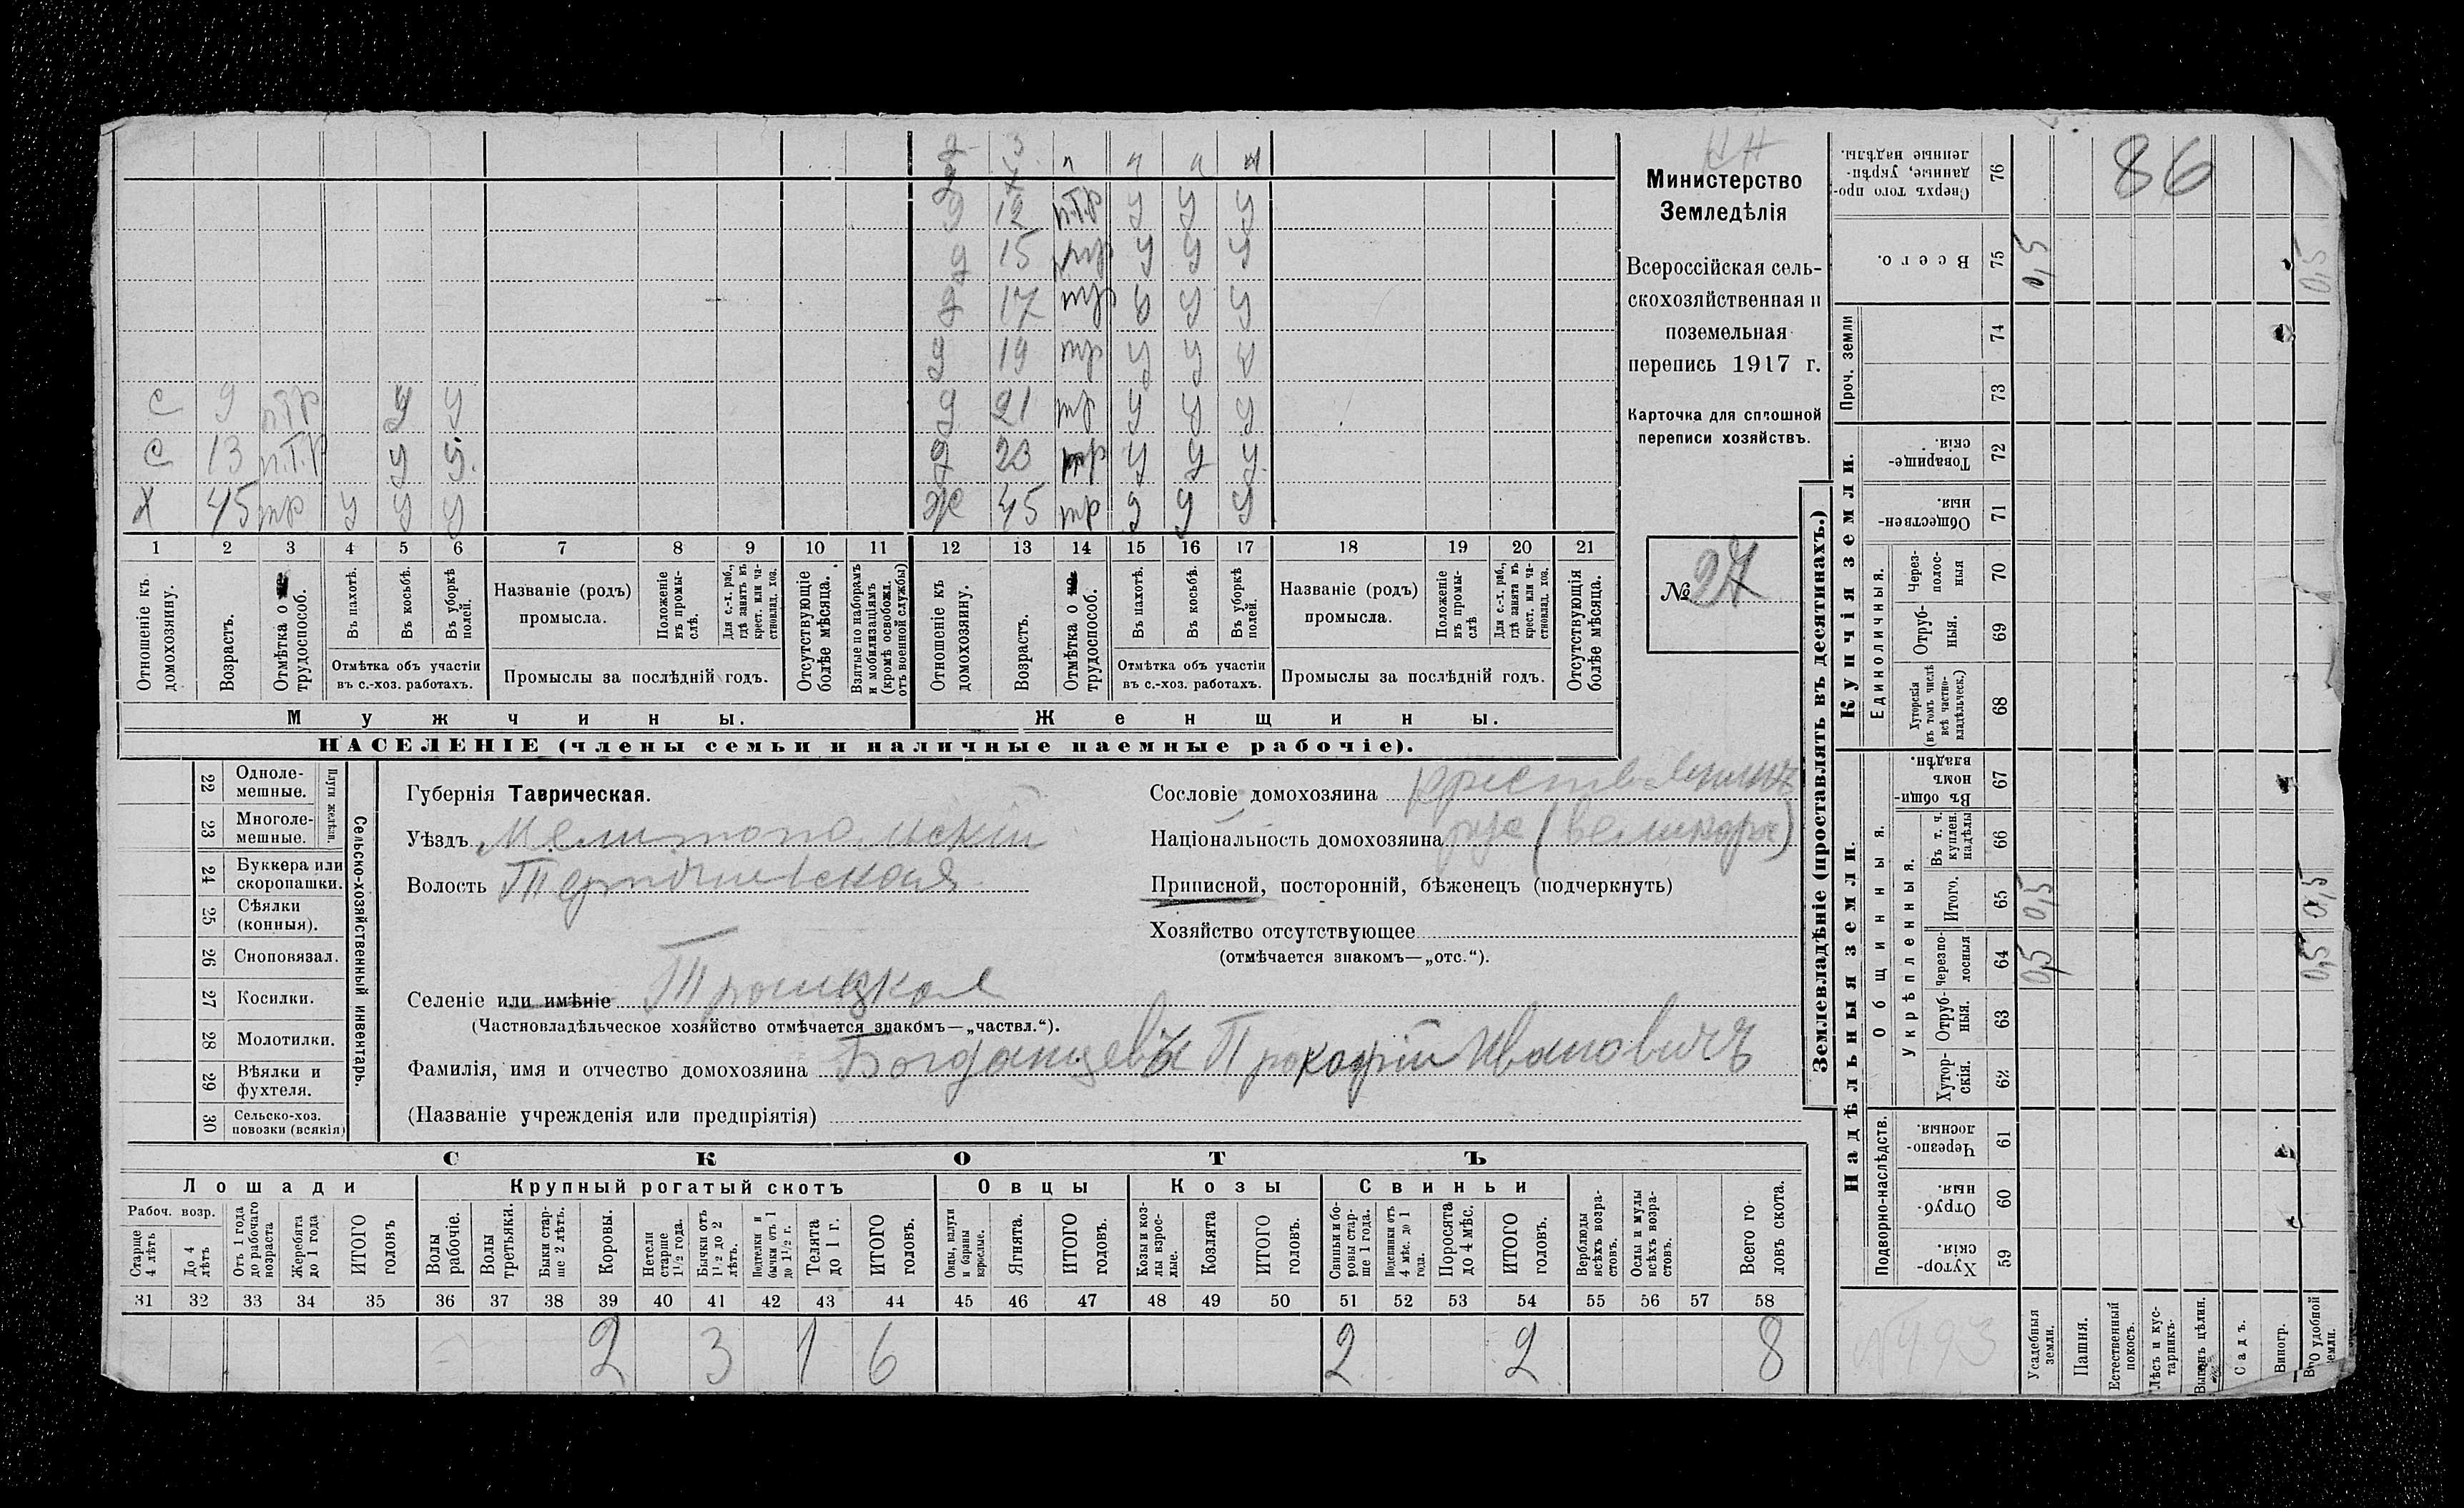 д 3 п ч ч ч
д 12 п.т.р у у у
д 15 тр у у у
д 17 тр у у у
д 19 тр у у у
с 9 птр у у д 21 тр у у у
с 13 п.т.р у у д 23 тр у у у
х 45 тр у у у ж 45 тр у у у
1 2 3 4 5 6 7 8 9 10 11 12 13 14 15 16 17 18 19 20 21
Отношеніе къ домохозяину.
Возрастъ.
Отмѣтка о трудоспособ.
Въ пахотѣ.
Въ косьбѣ.
Въ уборкѣ полей.
Отмѣтка объ участіи
въ с.-хоз. работахъ.
Названіе (родъ)
промысла.
Положеніе въ промы-слѣ.
Для с.-х. раб., гдѣ занятъ въ крест. или ча-стновлад. хоз.
Промыслы за послѣдній годъ.
Отсутствующіе болѣе мѣсяца.
Взятые по наборамъ и мобилизаціямъ (кромѣ освобожд. отъ военной службы)
Отношеніе къ домохозяину.
Возрастъ.
Отмѣтка о трудоспособ.
Въ пахотѣ.
Въ косьбѣ.
Въ уборкѣ полей.
Отмѣтка объ участіи
въ с.-хоз. работахъ.
Названіе (родъ)
промысла.
Положеніе въ промы-слѣ
Для с.-х. раб., гдѣ занята въ крест. или ча-стновлад. хоз.
Промыслы за послѣдній годъ.
Отсутствующія болѣе мѣсяца.
Мужчины.
Женщины.
НАСЕЛЕНІЕ (члены семьи и наличные наемные рабочіе).
Министерство
Земледѣлія
Всероссійская сель-
скохозяйственная и
поземельная
перепись 1917 г.
Карточка для сплошной
переписи хозяйствъ.
№ 27
22 Одноле-мешные.
23 Многоле-мешные.
Плуги желѣзн.
24 Буккера или скоропашки.
25 Сѣялки (конныя).
26 Сноповязал.
27 Косилки.
28 Молотилки.
29 Вѣялки и фухтеля.
30 Сельско-хоз. повозки (всякія)
Сельско-хозяйственный инвентарь.
Губернія Таврическая.
Уѣздъ Мелитопольскій
Волость
Селеніе или имѣніе Троицкое
(Частновладѣльческое хозяйство отмѣчается знакомъ—„частвл.“).
Фамилія, имя и отчество домохозяина Богданцевъ Прокофій Ивановичъ
(Названіе учрежденія или предпріятія)
Сословіе домохозяина крестьянинъ
Національность домохозяина рус (великорос)
Приписной, посторонній, бѣженецъ (подчеркнуть)
Хозяйство отсутствующее
(отмѣчается знакомъ—„отс.“).
СКОТЪ
Лошади Крупный рогатый скотъ Овцы Козы Свиньи
Рабоч. возр.
Старше 4 лѣтъ
До 4 лѣтъ
Отъ 1 года до рабочаго возраста
Жеребята до 1 года
ИТОГО головъ
Волы рабочіе.
Волы третьяки.
Быки стар-ше 2 лѣтъ.
Коровы.
Нетели старше 1½ года.
Бычки отъ 1½ до 2 лѣтъ.
Подтелки и бычки отъ 1 до 1½ г.
Телята до 1 г.
ИТОГО головъ.
Овцы, валухи и бараны взрослые.
Ягнята.
ИТОГО головъ.
Козы и коз-лы взрос-лые.
Козлята
ИТОГО головъ.
Свиньи и бо-ровы стар-ше 1 года.
Подсвинки отъ 4 мѣс. до 1 года.
Поросята до 4 мѣс.
ИТОГО головъ.
Верблюды всѣхъ возра-стовъ.
Ослы и мулы всѣхъ возра-стовъ.
Всего го-ловъ скота.
31 32 33 34 35 36 37 38 39 40 41 42 43 44 45 46 47 48 49 50 51 52 53 54 55 56 57 58
2 3 1 6 2 2 8
Землевладѣніе (проставлять въ десятинахъ.)
Надѣльныя земли.
Купчія земли.
Проч. земли
Общинныя.
Укрѣпленныя.
Единоличныя.
Подворно-наслѣдств.
Сверхъ того про-данные, укрѣп-ленные надѣлы. 76
Всего. 75 0,5 0,5
74
73
Товарище-скія. 72
Обществен-ныя. 71
Через-полос-ныя 70
Отруб-ныя. 69
Хуторскія (въ томъ числѣ всѣ частно-владѣльческ.) 68
Въ общи-номъ владѣн. 67
Въ т. ч. куплен. надѣлы 66
Итого. 65 0,5 0,5
Черезпо-лосныя 64 0,5 0,5
Отруб-ныя. 63
Хутор-скія. 62
Черезпо-лосныя. 61
Отруб-ныя. 60
Хутор-скія. 59
Усадебныя земли.
Пашня.
Естественный покосъ.
Лѣсъ и кус-тарникъ.
Выгонъ цѣлин.
Садъ.
Виногр.
86
№493